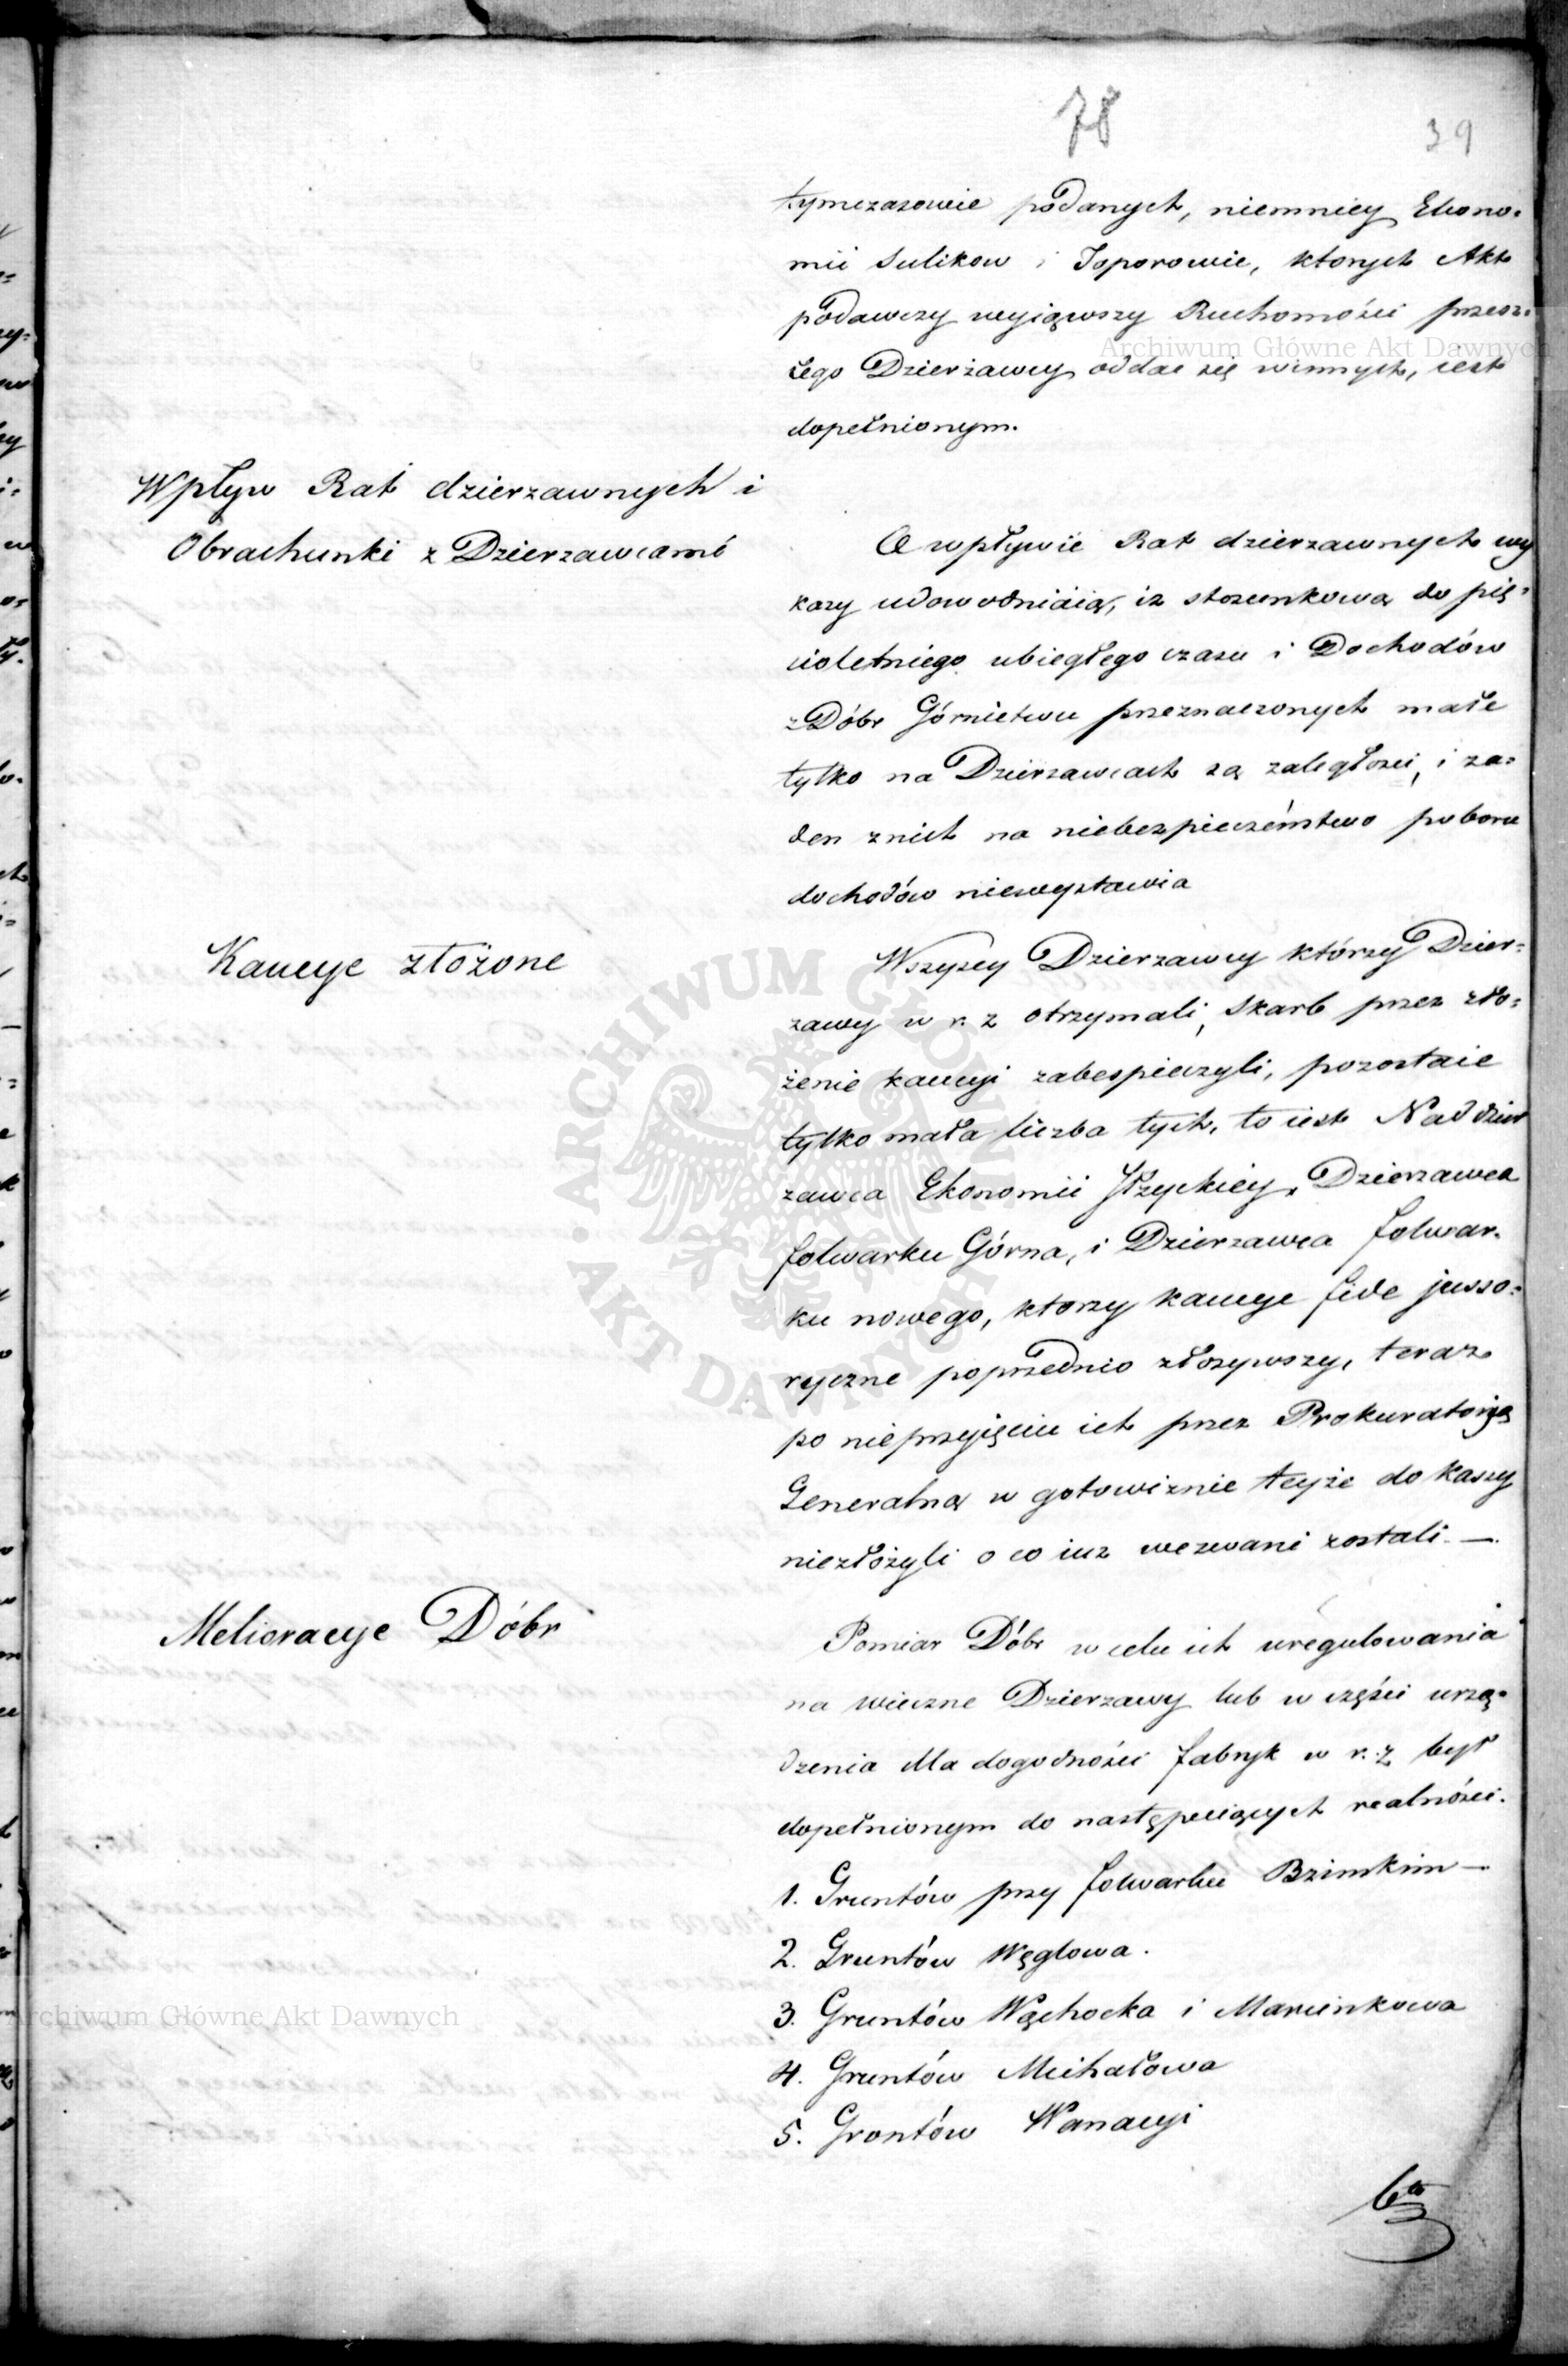 78
39
tymczasowie podanych, niemniey Ekono-
mii Sulikow i Toporowie, ktorych Akt
podawczy wyiąwszy Ruchomości przesz-
łego Dzierżawcy oddać się winnych, iest
dopełnionym.
Wpływ Rat dzierzawnych i
Obrachunki z Dzierzawcami
O wpływie Rat dzierzawnych wy
kazy udowodniaią, iz stosunkową do pię-
cioletniego ubiegłego czasu i Dochodów
z Dóbr Górnictwu przeznaczonych małe
tylko na Dzierzawcach są zaległosci, i za-
den z nich na niebezpieczeństwo poboru
dochodów niewystawia
Kaucye złożone
Wszyscy Dzierzawcy którzy Dzier-
zawy w r. z otrzymali, Skarb przez zło-
żenie kaucyi zabespieczyli, pozostaie
tylko mała liczba tych, to iest Naddzier
zawca Ekonomii Iłzyckiey, Dzierzawca
folwarku Górna, i Dzierzawca folwar-
ku nowego, ktorzy kaucye fide jusso-
ryczne poprzednio złozywszy, teraz
po nieprzyięciu ich przez Prokuratoryą
Generalną w gotowiznie teyże do kassy
niezłożyli o co iuz wezwani zostali. —
Melioracye Dóbr
Pomiar Dóbr w celu ich uregulowania
na wieczne Dzierzawy lub w części urzą-
dzenia dla dogodności fabryk w r. z. był
dopełnionym do następuiących realności.
1. Gruntów przy folwarku Bzinskim —
2. Gruntów Węglowa.
3. Gruntów Wąchocka i Marcinkowa
4. Gruntów Michałowa
5. Grontów Wanacyi
Archiwum Główne Akt Dawnych
ARCHIWUM GŁÓWNE AKT DAWNYCH
Archiwum Główne Akt Dawnych